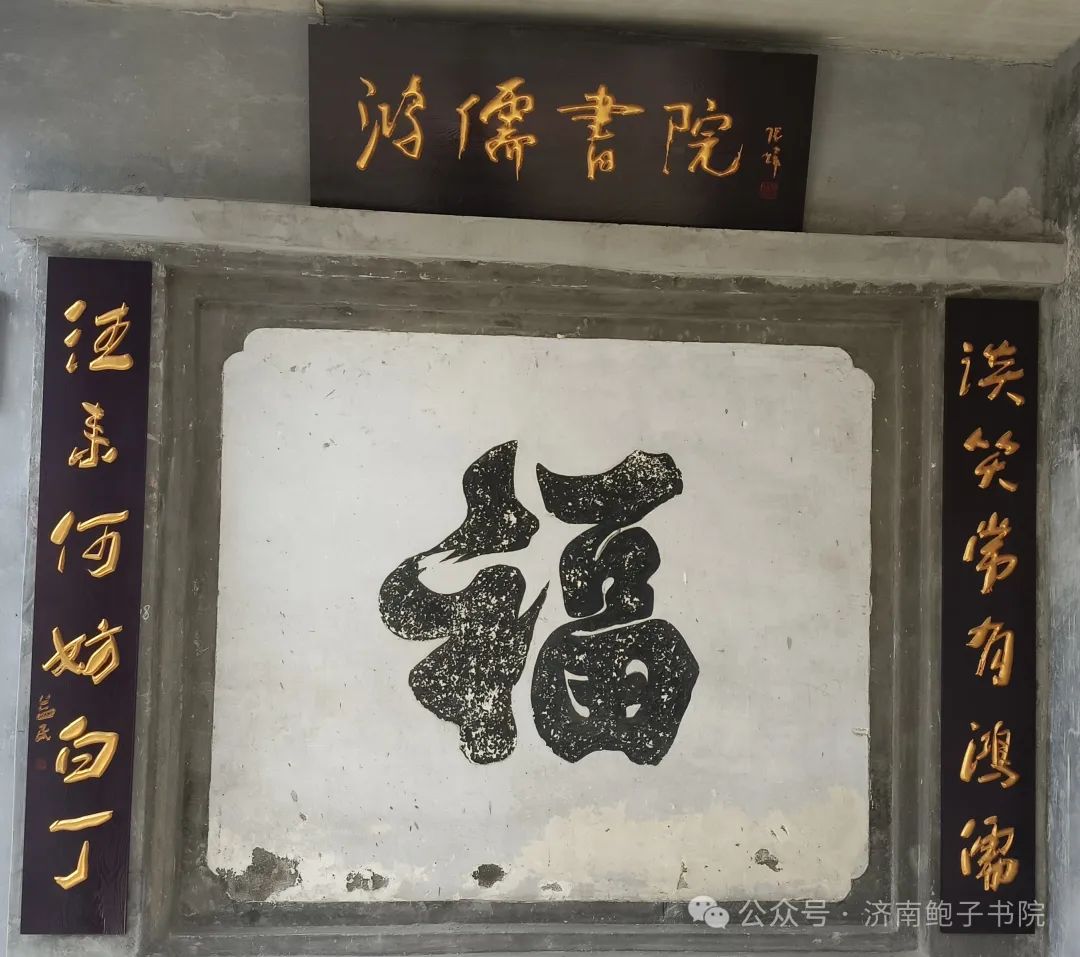 鸿儒書院
谈笑常有鸿儒
往来何妨白丁
福
公众号 · 济南鲍子书院